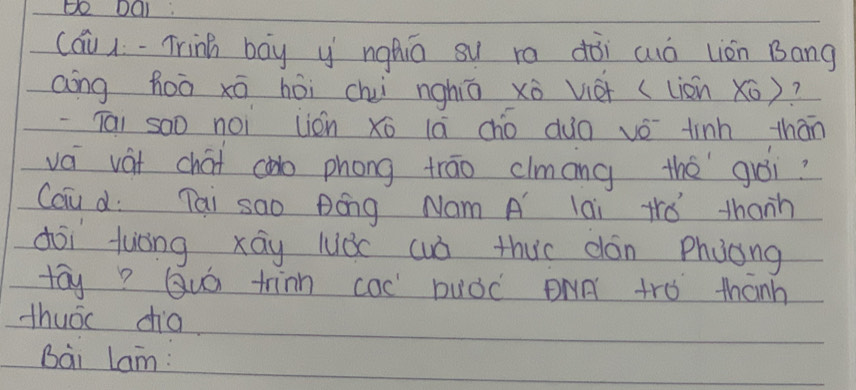 Đề bài:
Câu 1: - Trình bày ý nghĩa sự ra đời của Liên Bang
cộng hoà xã hội chủ nghĩa xô Viết (Liên Xô)?
- Tại sao nói Liên Xô là chỗ dựa về tinh thần
và vật chất cho phong trào c/mạng thế giới?
Câu 2: Tại sao Đông Nam Á lại trở thành
đối tượng xây lược của thực dân Phương
tây? Quá trình các bước ĐNÁ trở thành
thuộc địa
Bài làm: